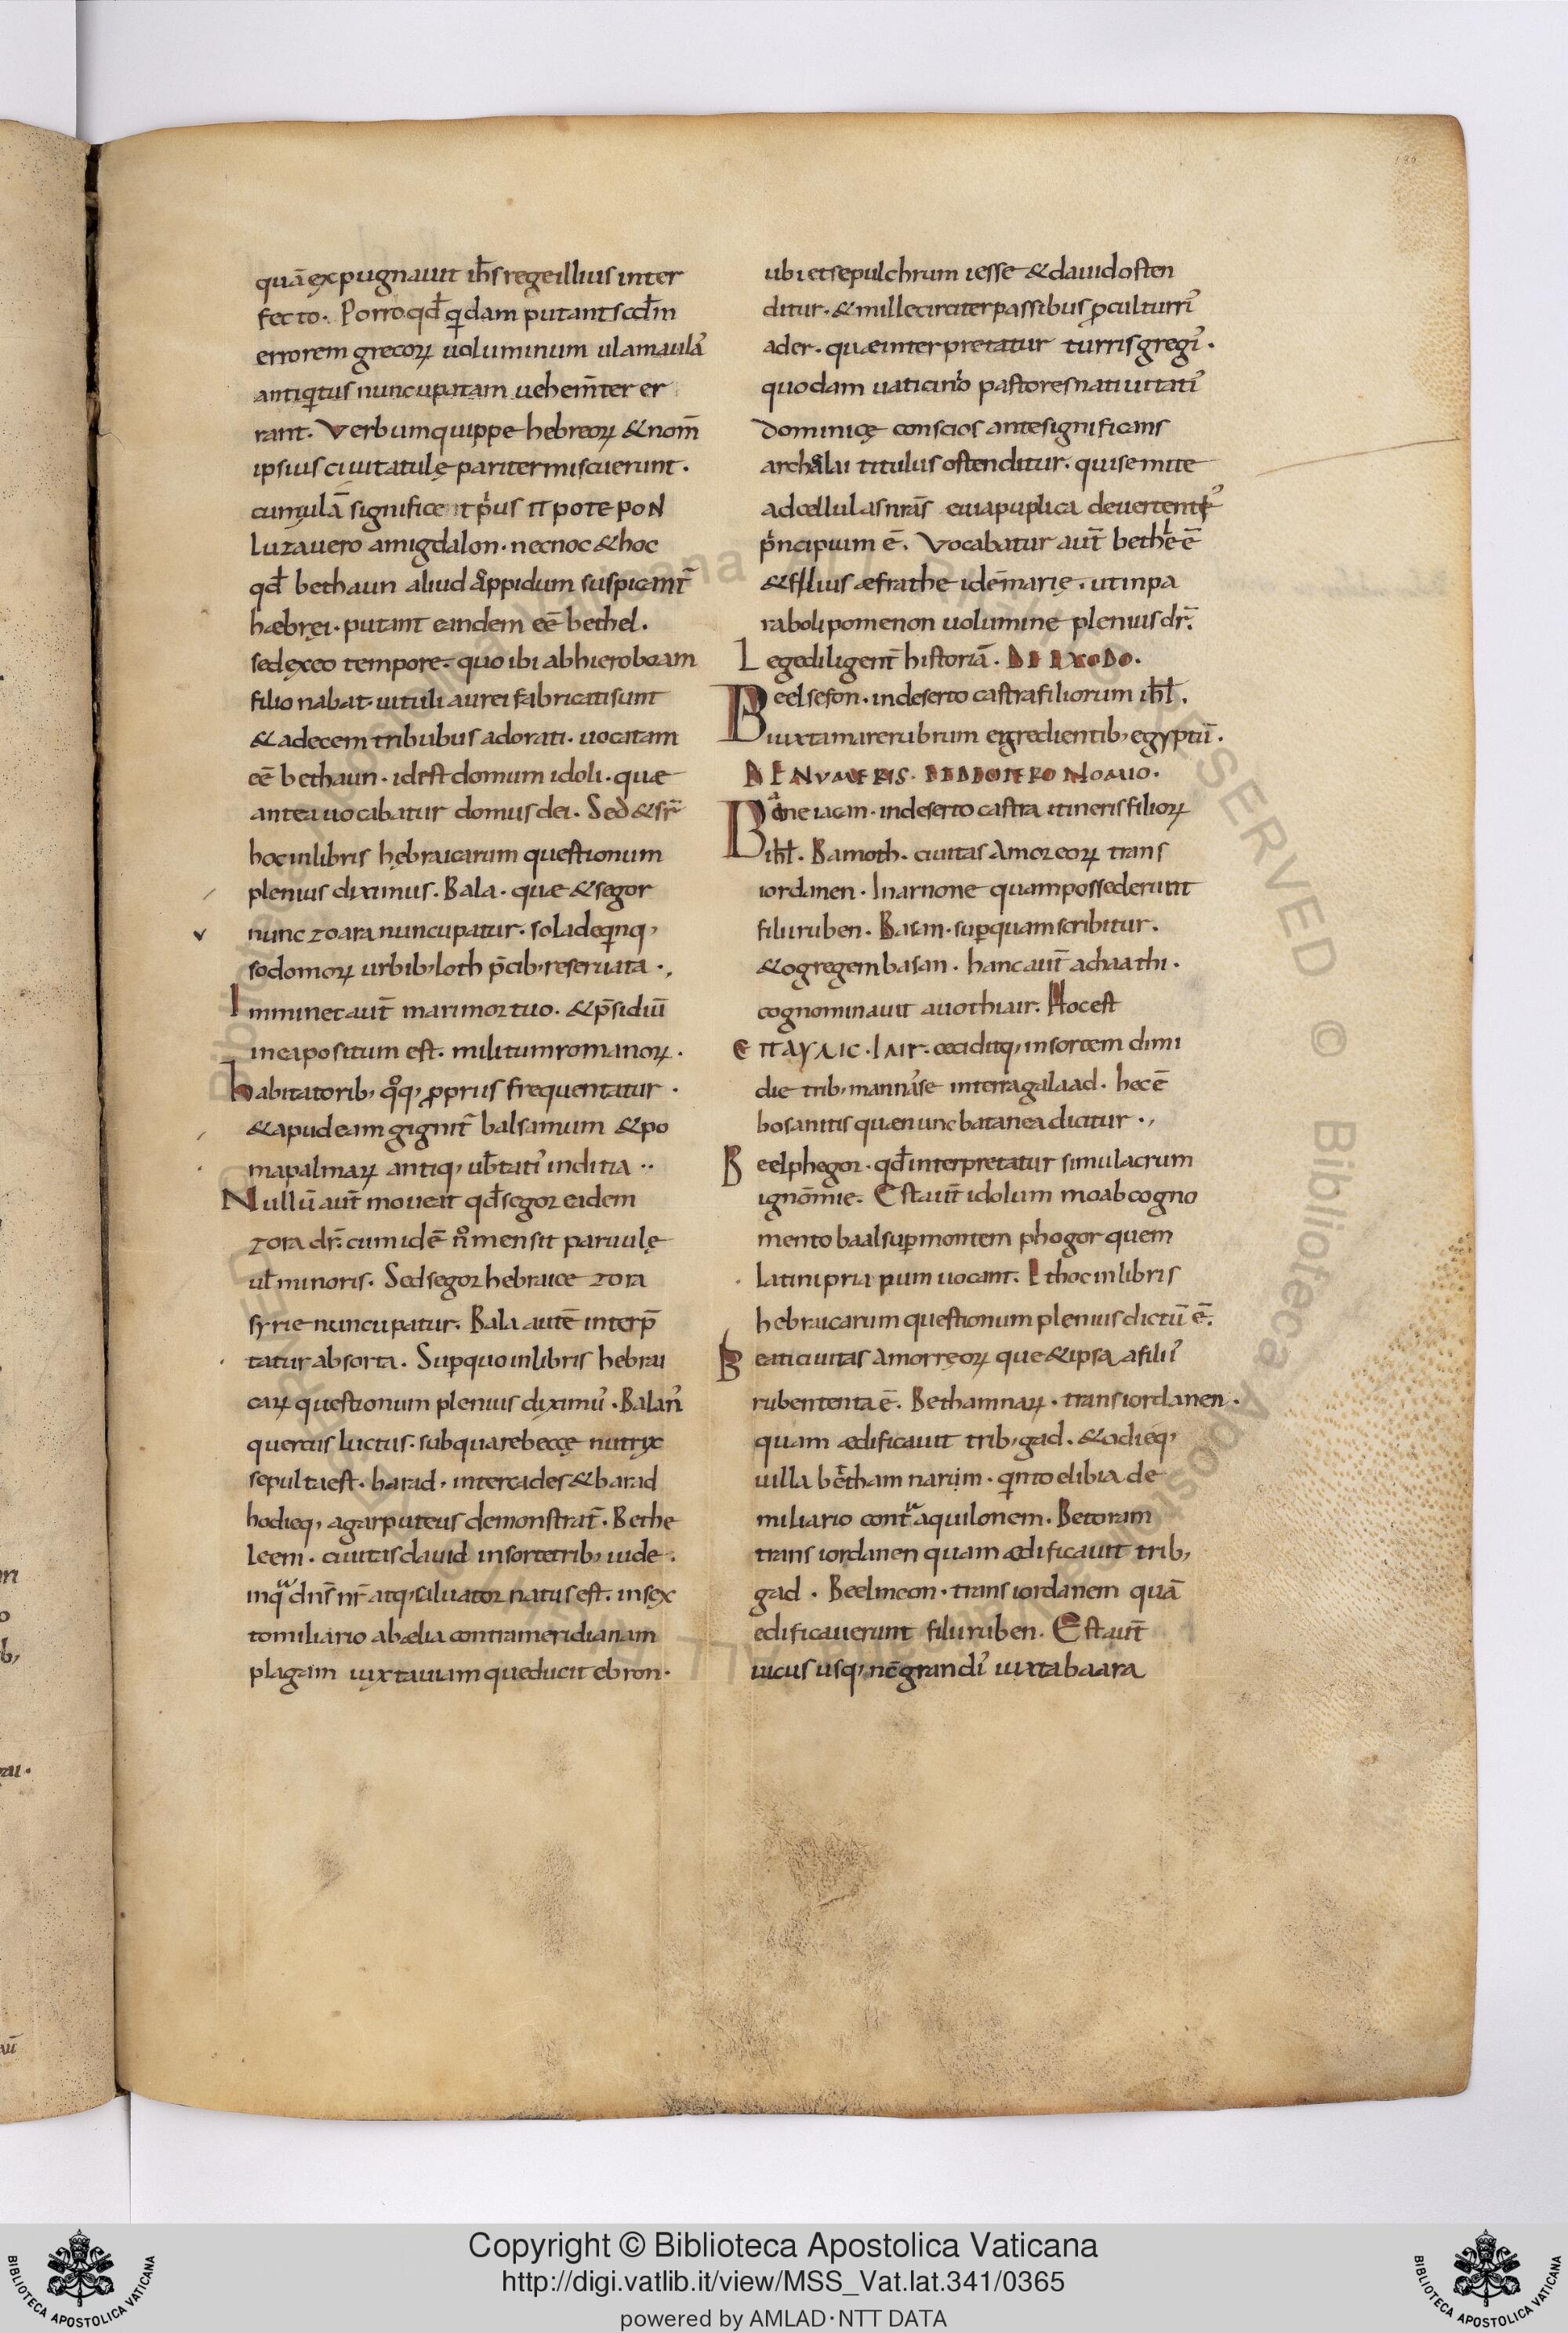 quā expugnauit ih̄s rege illius inter
fecto. Porro qd̄ qͥdam putant scd̄m
errorem grecoꝝ uoluminum ulamaulā
antiqͥtus nuncupatam uehem̄ter er
rant. Verbum quippe hebreoꝝ & nom̄
ipsius ciuitatulę pariter miscuerunt.
cum ulā significet pͥus π ροτε ρο Ν
Luza uero amigdalon. necnoc & hoc
qd̄ bethaun aliud appidum suspicant̄
hæbręi. putant eandem eē bethel.
sed ex eo tempore. quo ibi abhieroboam
filio nabat. uituli aurei fabricati sunt
& a decem tribubus adorati. uocitam
eē bethaun. id est domum idoli. quæ
antea uocabatur domus dei. Sed & sr̄
hoc in libris hębraicarum questionum
plenius diximus. Bala. quæ & segor
nunc zoara nuncupatur. sola de qͥnq,
sodomoꝝ urbib, loth p̄cib, reseruata .,
Imminet aut̄ mari mortuo. & p̄sidiū
in ea positum est. militum romanoꝝ.
habitatorib, qͦq, ꝓprius frequentatur.
& apud eam gignit̄ balsamum & po
ma palmaꝝ antiq, ub̄tati' inditia ..
Nullū aut̄ moueat qd̄ segor eidem
zora dr̄. cum idē nͦmen sit paruulę
ul̄ minoris. Sed segor hebraice zora
syrie nuncupatur. Bala autē interp̄
tatur absorta. Suꝑ quo in libris hebrai
caꝝ questionum plenius diximu'. Balan'
quercus luctus. sub qua rebeccę nutrix
sepulta est. barad. inter cades & barad
hodieq, agar puteus demonstrat̄. Bethe
leem. ciuitas dauid in sorte trib, iude.
in qͣ dn̄s nr̄ atq, saluator natus est. in sex
to miliario ab ælia contra meridianam
plagam iuxta uiam que ducit ebron.
ubi et sepulchrum iesse & dauid osten
ditur. & mille circiter passibus ꝓcul turri'
ader. quæ interpretatur turris gregi'.
quodam uaticinio pastores natiuitati'
dominicę conscios ante significans
archælai titulus ostenditur. qui semite
ad cellulas nr̄as e uia puplica deuertent'
pͥncipium ē. Vocabatur aut̄ bethl̄e ē
& filius æfrathe id ē marię. ut in pa
raboli pomenon uolumine plenius dr̄.
Lege diligent̄ historiā. DE EXODO.
Beelsefon. in deserto castra filiorum ih̄l.
iuxta mare rubrum egredientib, egyptū.
DE NUMERIS. DE DEUTERO NOMIO.
Bane iacan. in deserto castra itineris filioꝝ
ih̄l. Bamoth. ciuitas Amoreoꝝ trans
iordanen. In arnone quam possederunt
filii ruben. Basan. suꝑ quam scribitur.
& og regem basan. hanc aut̄ achaathi.
cognominauit auothiair. Hoc est
ЄΠΑΥΛΙC. Iair. ceciditq, in sortem dimi
die trib, mannase in terra galaad. hec ē
bosanitis quæ nunc batanea dicitur .,
Beelphegor. qd̄ interpretatur simulacrum
ignōmie. Est aut̄ idolum moab cogno
mento baal suꝑ montem phogor quem
latini priapum uocant. Et hoc in libris
hebraicarum questionum plenius dictū ē.
Beati ciuitas Amorręoꝝ que & ipsa a filii'
ruben tenta ē. Bethamnaꝝ. trans iordanen.
quam ædificauit trib, gad. & odieq,
uilla betham narum. qͥnto elibia de
miliario contͣ aquilonem. Betoram
trans iordanen quam ædificauit trib,
gad. Beelmeon. trans iordanem quā
edificauerunt filii ruben. Est aut̄
uicus usq, nc̄ grandi' iuxta baara
Copyright © Biblioteca Apostolica Vaticana
http://digi.vatlib.it/view/MSS_Vat.lat.341/0365
powered by AMLAD·NTT DATA